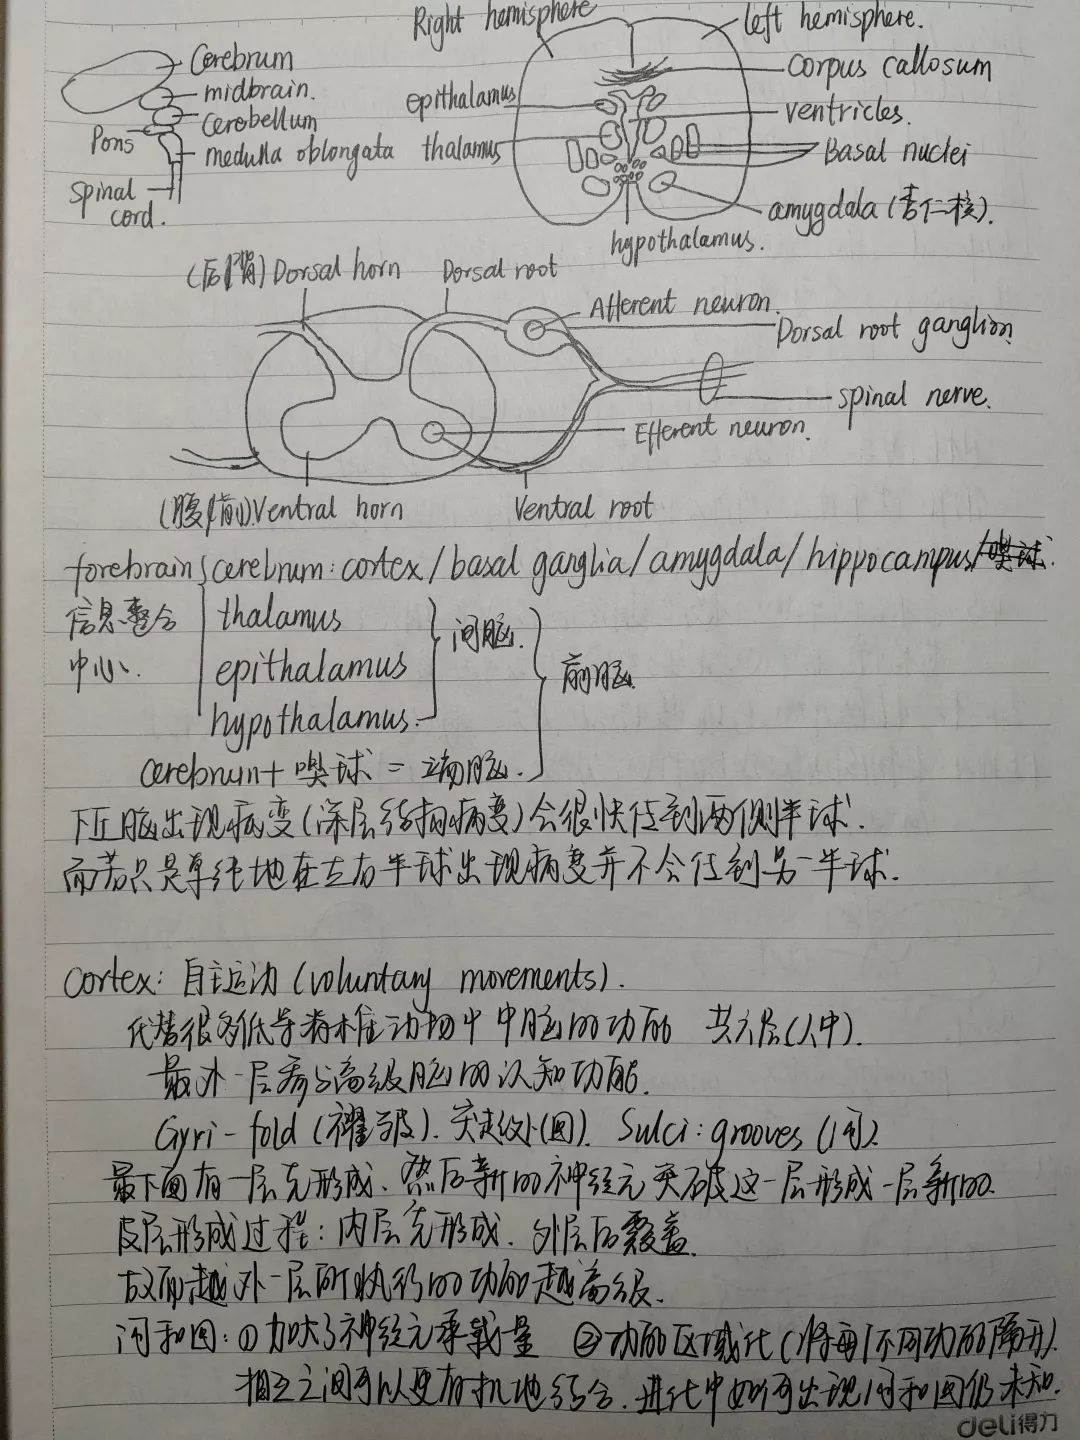 Right hemisphere
left hemisphere.
Cerebrum
corpus callosum
midbrain.
epithalamus
ventricles.
Cerebellum
Pons
medulla oblongata
thalamus
Basal nuclei
spinal cord.
amygdala (杏仁核).
hypothalamus.
(后/背) Dorsal horn
Dorsal root
Afferent neuron.
Dorsal root ganglion.
spinal nerve.
Efferent neuron.
(腹/前) Ventral horn
Ventral root
forebrain { cerebrum: cortex / basal ganglia / amygdala / hippocampus /
信息整合
thalamus
间脑.
中心.
epithalamus
前脑
hypothalamus.
cerebrum + 嗅球 = 端脑.
下丘脑出现病变(深层结构病变)会很快传到两侧半球.
而若只是单纯地在左右半球出现病变并不会传到另一半球.
Cortex: 自主运动 (voluntary movements).
代替很多低等脊椎动物中中脑的功能 共六层(人中).
最外一层参与高级脑的认知功能.
Gyri - fold (褶皱). 突起处(回). Sulci: grooves (沟).
最下面有一层先形成. 然后新的神经元突破这一层形成一层新的.
皮层形成过程: 内层先形成. 外层后覆盖.
故而越外一层所执行的功能越高级.
沟和回: ①加大了神经元承载量 ②功能区域化 (将每个不同功能隔开).
相互之间可以更有机地结合. 进化中如何出现沟和回仍未知.
deli得力